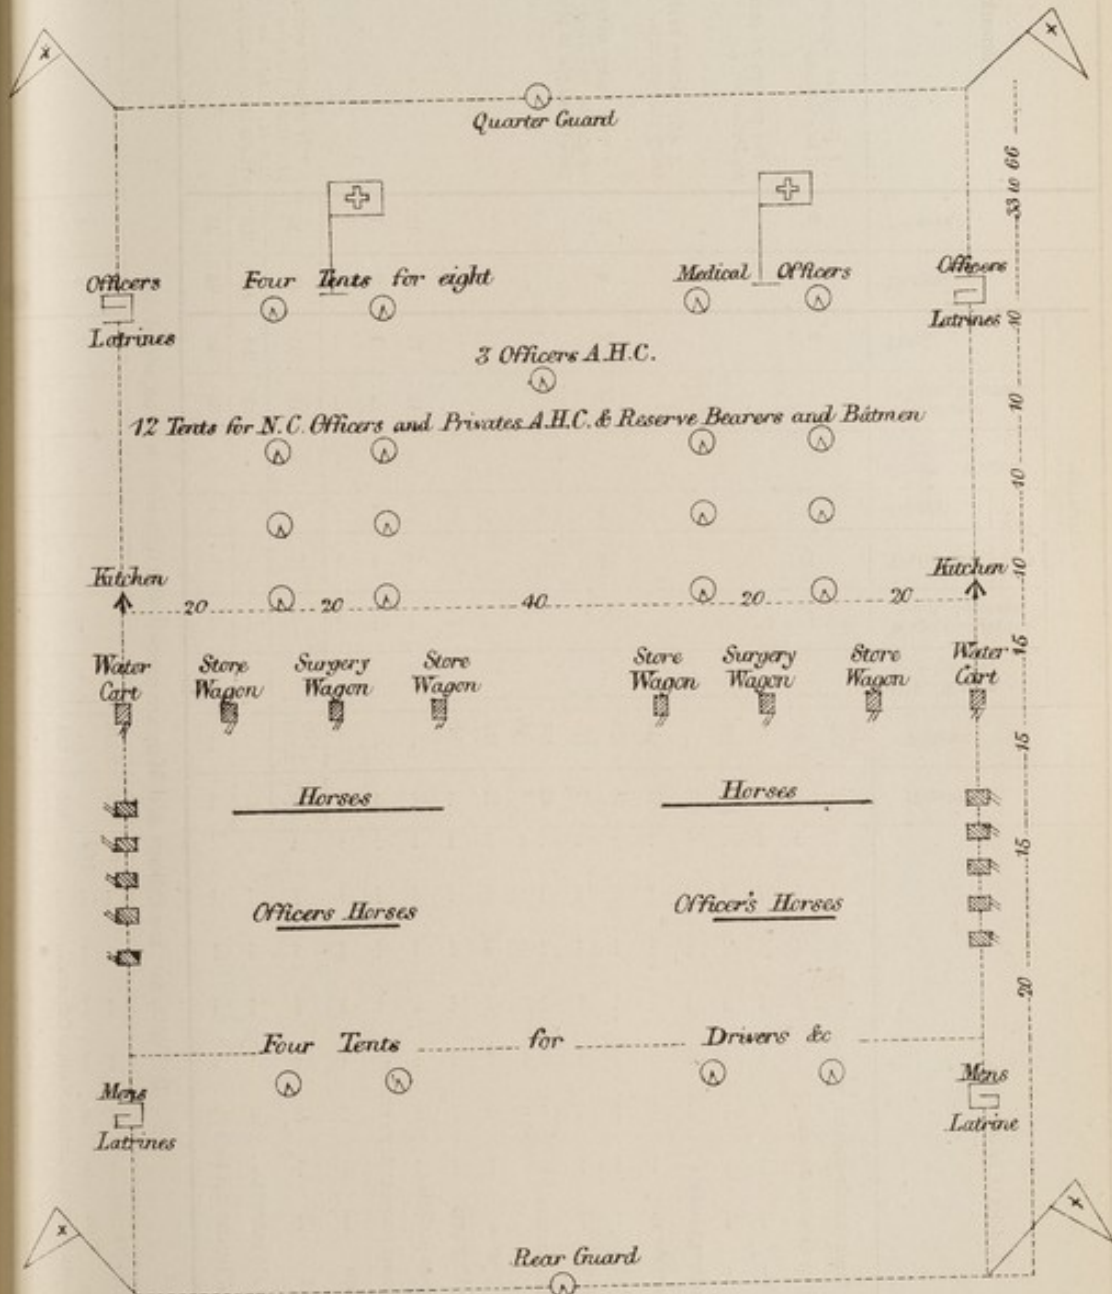 Quarter Guard
33 to 66
Officers
Latrines
Four Tents for eight Medical Officers
Officers
Latrines
10
3 Officers A.H.C.
12 Tents for N.C. Officers and Privates A.H.C. & Reserve Bearers and Bâtmen
10
10
Kitchen
Kitchen
10
20 20 40 20 20
Water Cart
Store Wagon
Surgery Wagon
Store Wagon
Store Wagon
Surgery Wagon
Store Wagon
Water Cart
15
15
Horses
Horses
15
Officers Horses
Officer's Horses
20
Four Tents for Drivers &c
Mens
Latrines
Mens
Latrine
Rear Guard